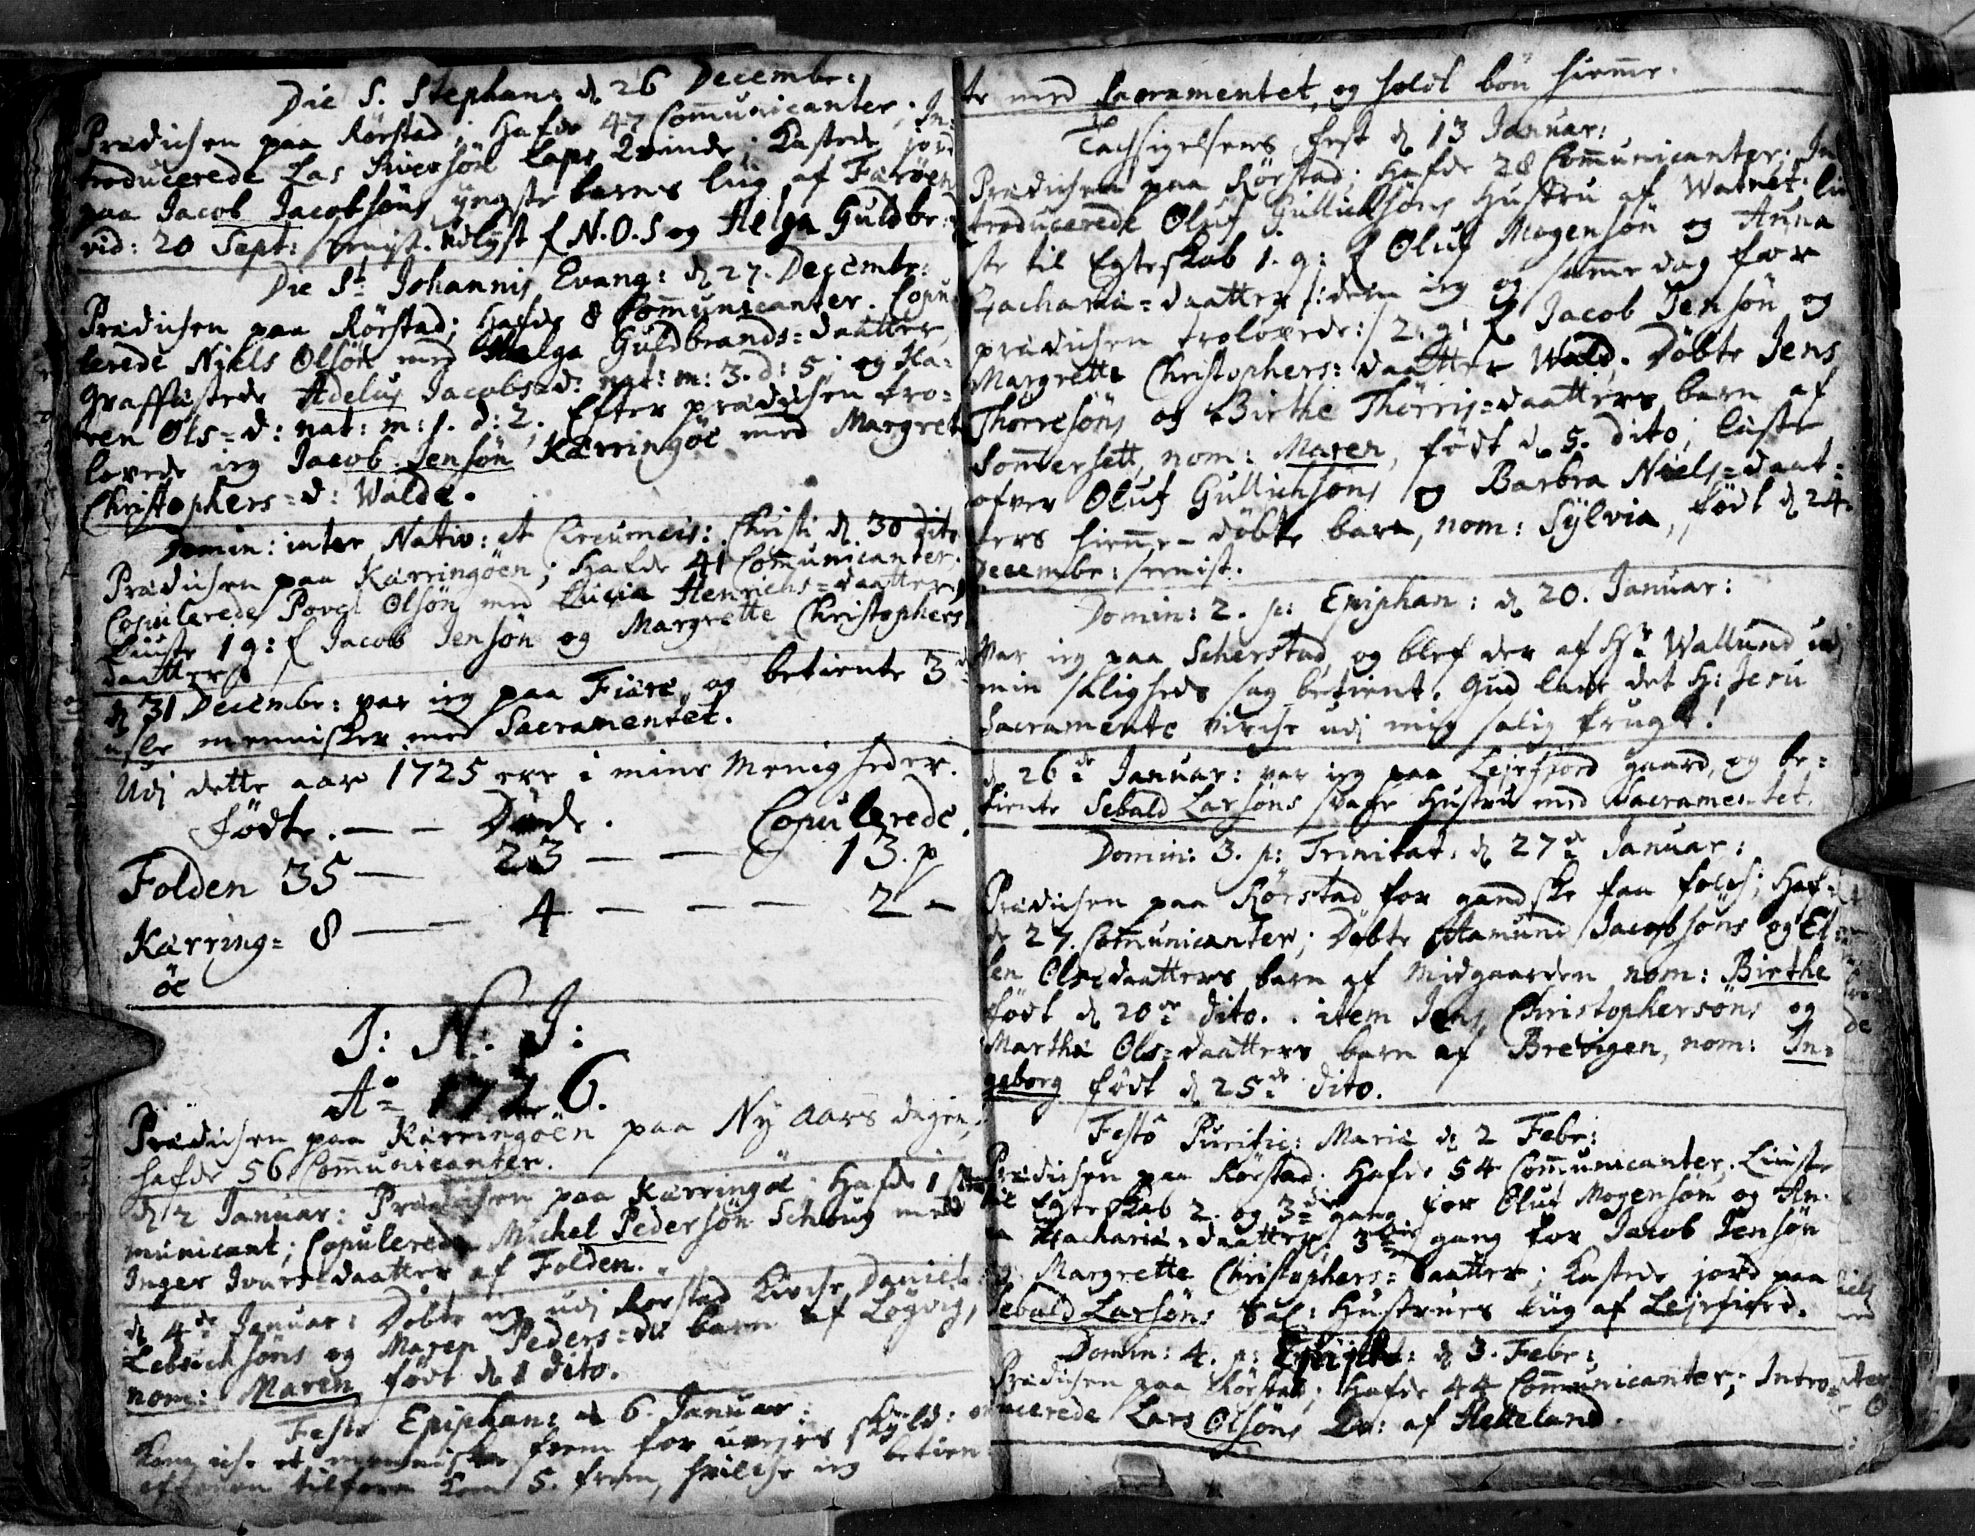 Die S. Stephan: d. 26 Decembr:
Prædichen paa Rörstad; Hafde 47 Communicanter; In-
troducerede Las Siversön Laps Qvinde; Kastede jord
paa Jacob Jacobsöns yngste barns liig af Færöen
vid: 20 Sept: præst. Udlyst f N.O.S og Helga Guldbr: d
Die St Johannis Evang: d. 27. Decembr:
Prædichen paa Rörstad; Hafde 8 Communicanter. Copu-
lerede Niels Olsön med Helga Guldbrands=daatter,
Graffæstede Adelus Jacobs d: nat: m: 3. d: 5; og Ka-
ren Ols=d: nat: m: 1. d: 2. Efter prædichen tro-
lovede ieg Jacob Jensön Kærringöe med Margret
Christophers=d: Walde.
Domin: inter Nativ: et Circumcis: Christi d. 30 dito
Prædichen paa Kærringöen; Hafde 41 Communicanter.
Copulerede Povel Olsön med Lucia Henrichs=daatter,
Liuste 1 g: f Jacob Jensön og Margrette Christophers
daatter
d. 31 Decembr: var ieg paa Fiære og betiente 3
usle mennisker med Sacramentet.
Udj dette aar 1725 ere i mine Menigheder.
Födte. — — Döde. Copulerede.
Folden 35 — 23 — — 13. p
Kærring= 8 — — 4 — — — 2 —
öe
I: N: J:
Ao 1726.
Prædichen paa Kærringöen paa Ny Aars dagen,
hafde 56 Communicanter.
d. 2 Januar: Prædichen paa Kærringöe. Hafde 1 Com
municant; Copulerede Michel Pedersön Schoug med
Inger Ivers=daatter af Folden.
d. 4de Januar: Döbte ieg udj Rörstad Kirche Daniel
Lebrichsöns og Maren Peders=dr barn af Lögvig,
nom: Maren, födt d. 1 dito.
Festo Epiphan: d. 6. Januar:
Kom iche et menniske frem for uveyrs skyld:
aftenen tilforn kom 5. frem, hvilche ieg betien
te med Sacramentet, og holdt bön hiemme.
Tachsigelsens fest d. 13 Januar:
Prædichen paa Rörstad; Hafde 28 Communicanter; In
troducerede Oluf Gullichsöns Hustru af Watnet; liu
ste til Egteskab 1. g: f Oluf Mogensön og Anna
Zachariæ=daatter /: dem ieg og samme dag for
prædichen trolovede :/ 2. g: f Jacob Jensön og
Margrette Christophers=daatter Wald. Döbte Jens
Thorresöns og Birthe Thörris=daatters barn af
Sommersett, nom: Maren, födt d. 5. dito; læste
ofver Oluf Gullichsöns og Barbra Niels=daat=
ters hiemme-döbte barn, nom: Sylvia, födt d. 24
Decembr: præst.
Domin: 2. p: Epiphan: d. 20. Januar:
Var ieg paa Scherstad, og blef der af Hr Wallund udj
min saligheds sag betient. Gud lade det H: Jesu
Sacramente virche udj mig salig frugt!
d. 26de Januar: var ieg paa Lejefjord gaard, og be=
tiente Sebald Larsöns svage Hustru med Sacramentet.
Domin: 3. p: Trinitat: d. 27de Januar:
Prædichen paa Rörstad for gandske faa folch; Haf-
de 27. Communicanter; Döbte Hamund Jacobsöns og El=
len Ols=daatters barn af Midgaarden nom: Birthe
födt d. 20de dito. item Jens Christophersöns og
Martha Ols=daatters barn af Brevigen, nom: In=
geborg födt d. 25de dito.
Festô Purific: Mariæ d. 2 Febr:
Prædichen paa Rörstad. Hafde 54 Communicanter. Liuste
til Egteskab 2. og 3de gang for Oluf Mogensön og An-
na Zachariæ-daatter; 3die gang for Jacob Jensön
og Margrette Christophers=daatter; Kastede jord paa
Sebald Larsöns Sal: Hustrues liig af Lejefiord.
Domin: 4. p: Epiph: d. 3. Febr:
Prædichen paa Rörstad; Hafde 44 Communicanter; Intro-
ducerede Lars Olsöns Qv: af Helleland.